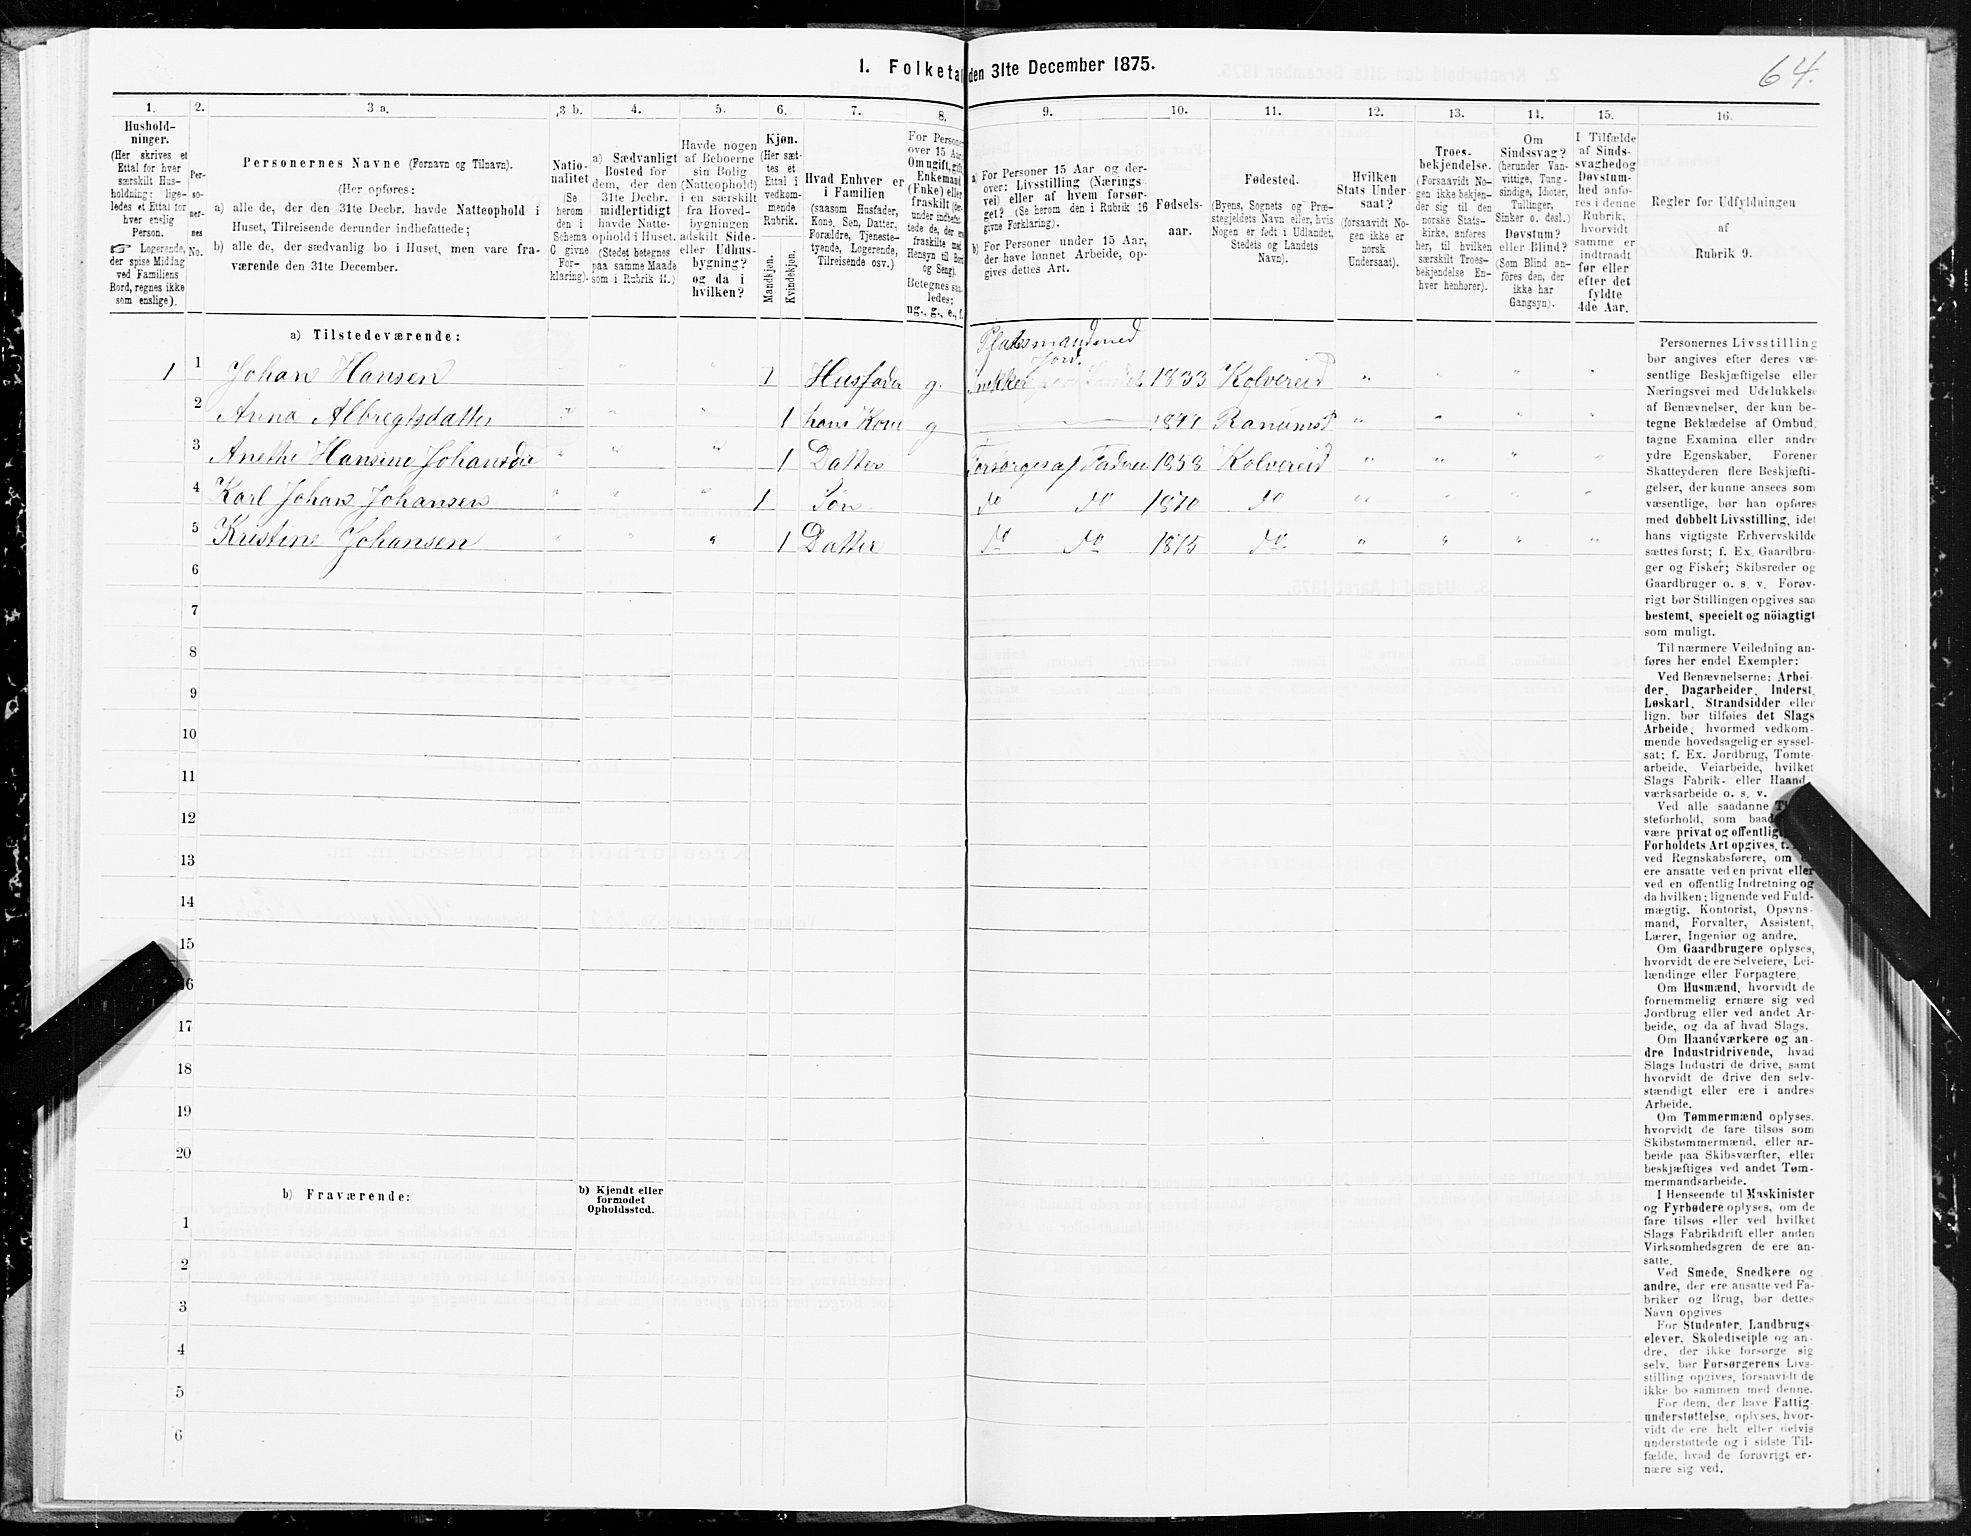 64.
1. Folketal den 31te December 1875.
1. 2. 3 a. 3 b. 4. 5. 6. 7. 8. 9. 10. 11. 12. 13. 14. 15. 16.
Husholdninger. (Her skrives et Ettal for hver særskilt Husholdning; ligeledes et Ettal for hver enslig Person. ☞ Logerende, der spise Middag ved Familiens Bord, regnes ikke som enslige).
Personernes No.
Personernes Navne (Fornavn og Tilnavn).
(Her opføres:
a) alle de, der den 31te Decbr. havde Natteophold i Huset, Tilreisende derunder indbefattede;
b) alle de, der sædvanlig bo i Huset, men vare fraværende den 31te December.
Nationalitet (Se herom den i Schema C givne Forklaring).
a) Sædvanligt Bosted for dem, der den 31te Decbr. midlertidigt havde Natteophold i Huset. (Stedet betegnes paa samme Maade som i Rubrik 11.)
Havde nogen af Beboerne sin Bolig (Natteophold) i en særskilt fra Hovedbygningen adskilt Side- eller Udhusbygning? og da i hvilken?
Kjøn. (Her sættes et Ettal i vedkommende Rubrik.
Mandkjøn. Kvindekjøn.
Hvad Enhver er i Familien (saasom Husfader, Kone, Søn, Datter, Forældre, Tjenestetyende, Logerende, Tilreisende osv.)
For Personer over 15 Aar: Om ugift, gift, Enkemand (Enke) eller fraskilt
Betegnes saaledes: ug., g., e., f.
a) For Personer 15 Aar og derover: Livsstilling (Næringsvei) eller af hvem forsørget? (Se herom den i Rubrik 16 givne Forklaring).
b) For Personer under 15 Aar, der have lønnet Arbeide, opgives dettes Art.
Fødselsaar.
Fødested. (Byens, Sognets og Præstegjeldets Navn eller, hvis Nogen er født i Udlandet, Stedets og Landets Navn).
Hvilken Stats Undersaat? (forsaavidt Nogen ikke er norsk Undersaat).
Troesbekjendelse. (Forsaavidt Nogen ikke bekjender sig til den norske Statskirke, anføres her, til hvilken særskilt Troesbekjendelse Enhver henhører).
Om Sindssvag? (herunder Vanvittige, Tungsindige, Idioter, Tullinger, Sinker o. desl.) Døvstum? eller Blind? (Som Blind anføres den, der ikke har Gangsyn).
I Tilfælde af Sindssvaghed og Døvstumhed anføres i denne Rubrik, hvorvidt samme er indtraadt før eller efter det fyldte 4de Aar.
Regler for Udfyldningen af Rubrik 9.
a) Tilstedeværende:
Pladsmand med Jord.
1 1 Johan Hansen " " 1 Husfader g. 1833 Kolvereid " " " "
2 Anna Albregtsdatter " " " 1 hans Kone g 1841 " " " "
3 Anethe Hansine Johansdtr " " " 1 Datter Forsørges af Faderen 1858 Kolvereid " " " "
4 Karl Johan Johansen " " " 1 Søn do do 1870 do " " " "
5 Kristine Johansen " " " 1 Datter do do 1875 do " " " "
6
7
8
9
10
11
12
13
14
15
16
17
18
19
20
b) Fraværende:
b) Kjendt eller formodet Opholdssted.
1
2
3
4
5
6
Personernes Livsstilling
bør angives efter deres væ-
sentlige Beskjæftigelse eller
Næringsvei med Udelukkelse
af Benævnelser, der kun be-
tegne Beklædelse af Ombud,
tagne Examina eller andre
ydre Egenskaber. Forener
Skatteyderen flere Beskjæfti-
gelser, der kunne ansees som
væsentlige, bør han opføres
med dobbelt Livsstilling, idet
hans vigtigste Erhvervskilde
sættes først; f. Ex. Gaardbru-
ger og Fisker; Skibsreder og
Gaardbruger o. s. v. Forøv-
rigt bør Stillingen opgives saa
bestemt, specielt og nöiagtigt
som muligt.
Til nærmere Veiledning an-
føres her endel Exempler:
Ved Benævnelserne: Arbei-
der, Dagarbeider, Inderst,
Løskarl, Strandsidder eller
lign. bør tilføies det Slags
Arbeide, hvormed vedkom-
mende hovedsagelig er syssel-
sat; f. Ex. Jordbrug, Tomte-
arbeide, Veiarbeide, hvilket
Slags Fabrik- eller Haand-
værksarbeide o. s. v.
Ved alle saadanne
steforhold, som
være privat og offentlig,
Forholdets Art opgives,
ved Regnskabsførere, om
ere ansatte ved en privat eller
ved en offentlig Indretning og
da hvilken; lignende ved Fuld-
mægtig, Kontorist, Opsyns-
mand, Forvalter, Assistent,
Lærer, Ingeniør og andre.
Om Gaardbrugere oplyses,
hvorvidt de ere Selveiere, Lei-
lændinge eller Forpagtere.
Om Husmænd, hvorvidt de
fornemmelig ernære sig ved
Jordbrug eller ved andet Ar-
beide, og da af hvad Slags.
Om Haandværkere og an-
dre Industridrivende, hvad
Slags Industri de drive, samt
hvorvidt de drive den selv-
stændigt eller ere i andres
Arbeide.
Om Tømmermænd oplyses,
hvorvidt de fare tilsøs som
Skibstømmermænd, eller ar-
beide paa Skibsværfter, eller
beskjæftiges ved andet Tøm-
mermandsarbeide.
I Henseende til Maskinister
og Fyrbødere oplyses, om de
fare tilsøs eller ved hvilket
Slags Fabrikdrift eller anden
Virksomhedsgren de ere an-
satte.
Ved Smede, Snedkere og
andre, der ere ansatte ved Fa-
briker og Brug, bør dettes
Navn opgives
For Studenter, Landbrugs-
elever, Skoledisciple og an-
dre, der ikke forsørge sig
selv, bør Forsørgerens Livs-
stilling opgives, forsaavidt de
ikke bo sammen med denne.
For dem, der have Fattig-
understøttelse, oplyses, hvor-
vidt de ere helt eller delvis
understøttede og i sidste Til-
fælde, hvad de forøvrigt er-
nære sig ved.